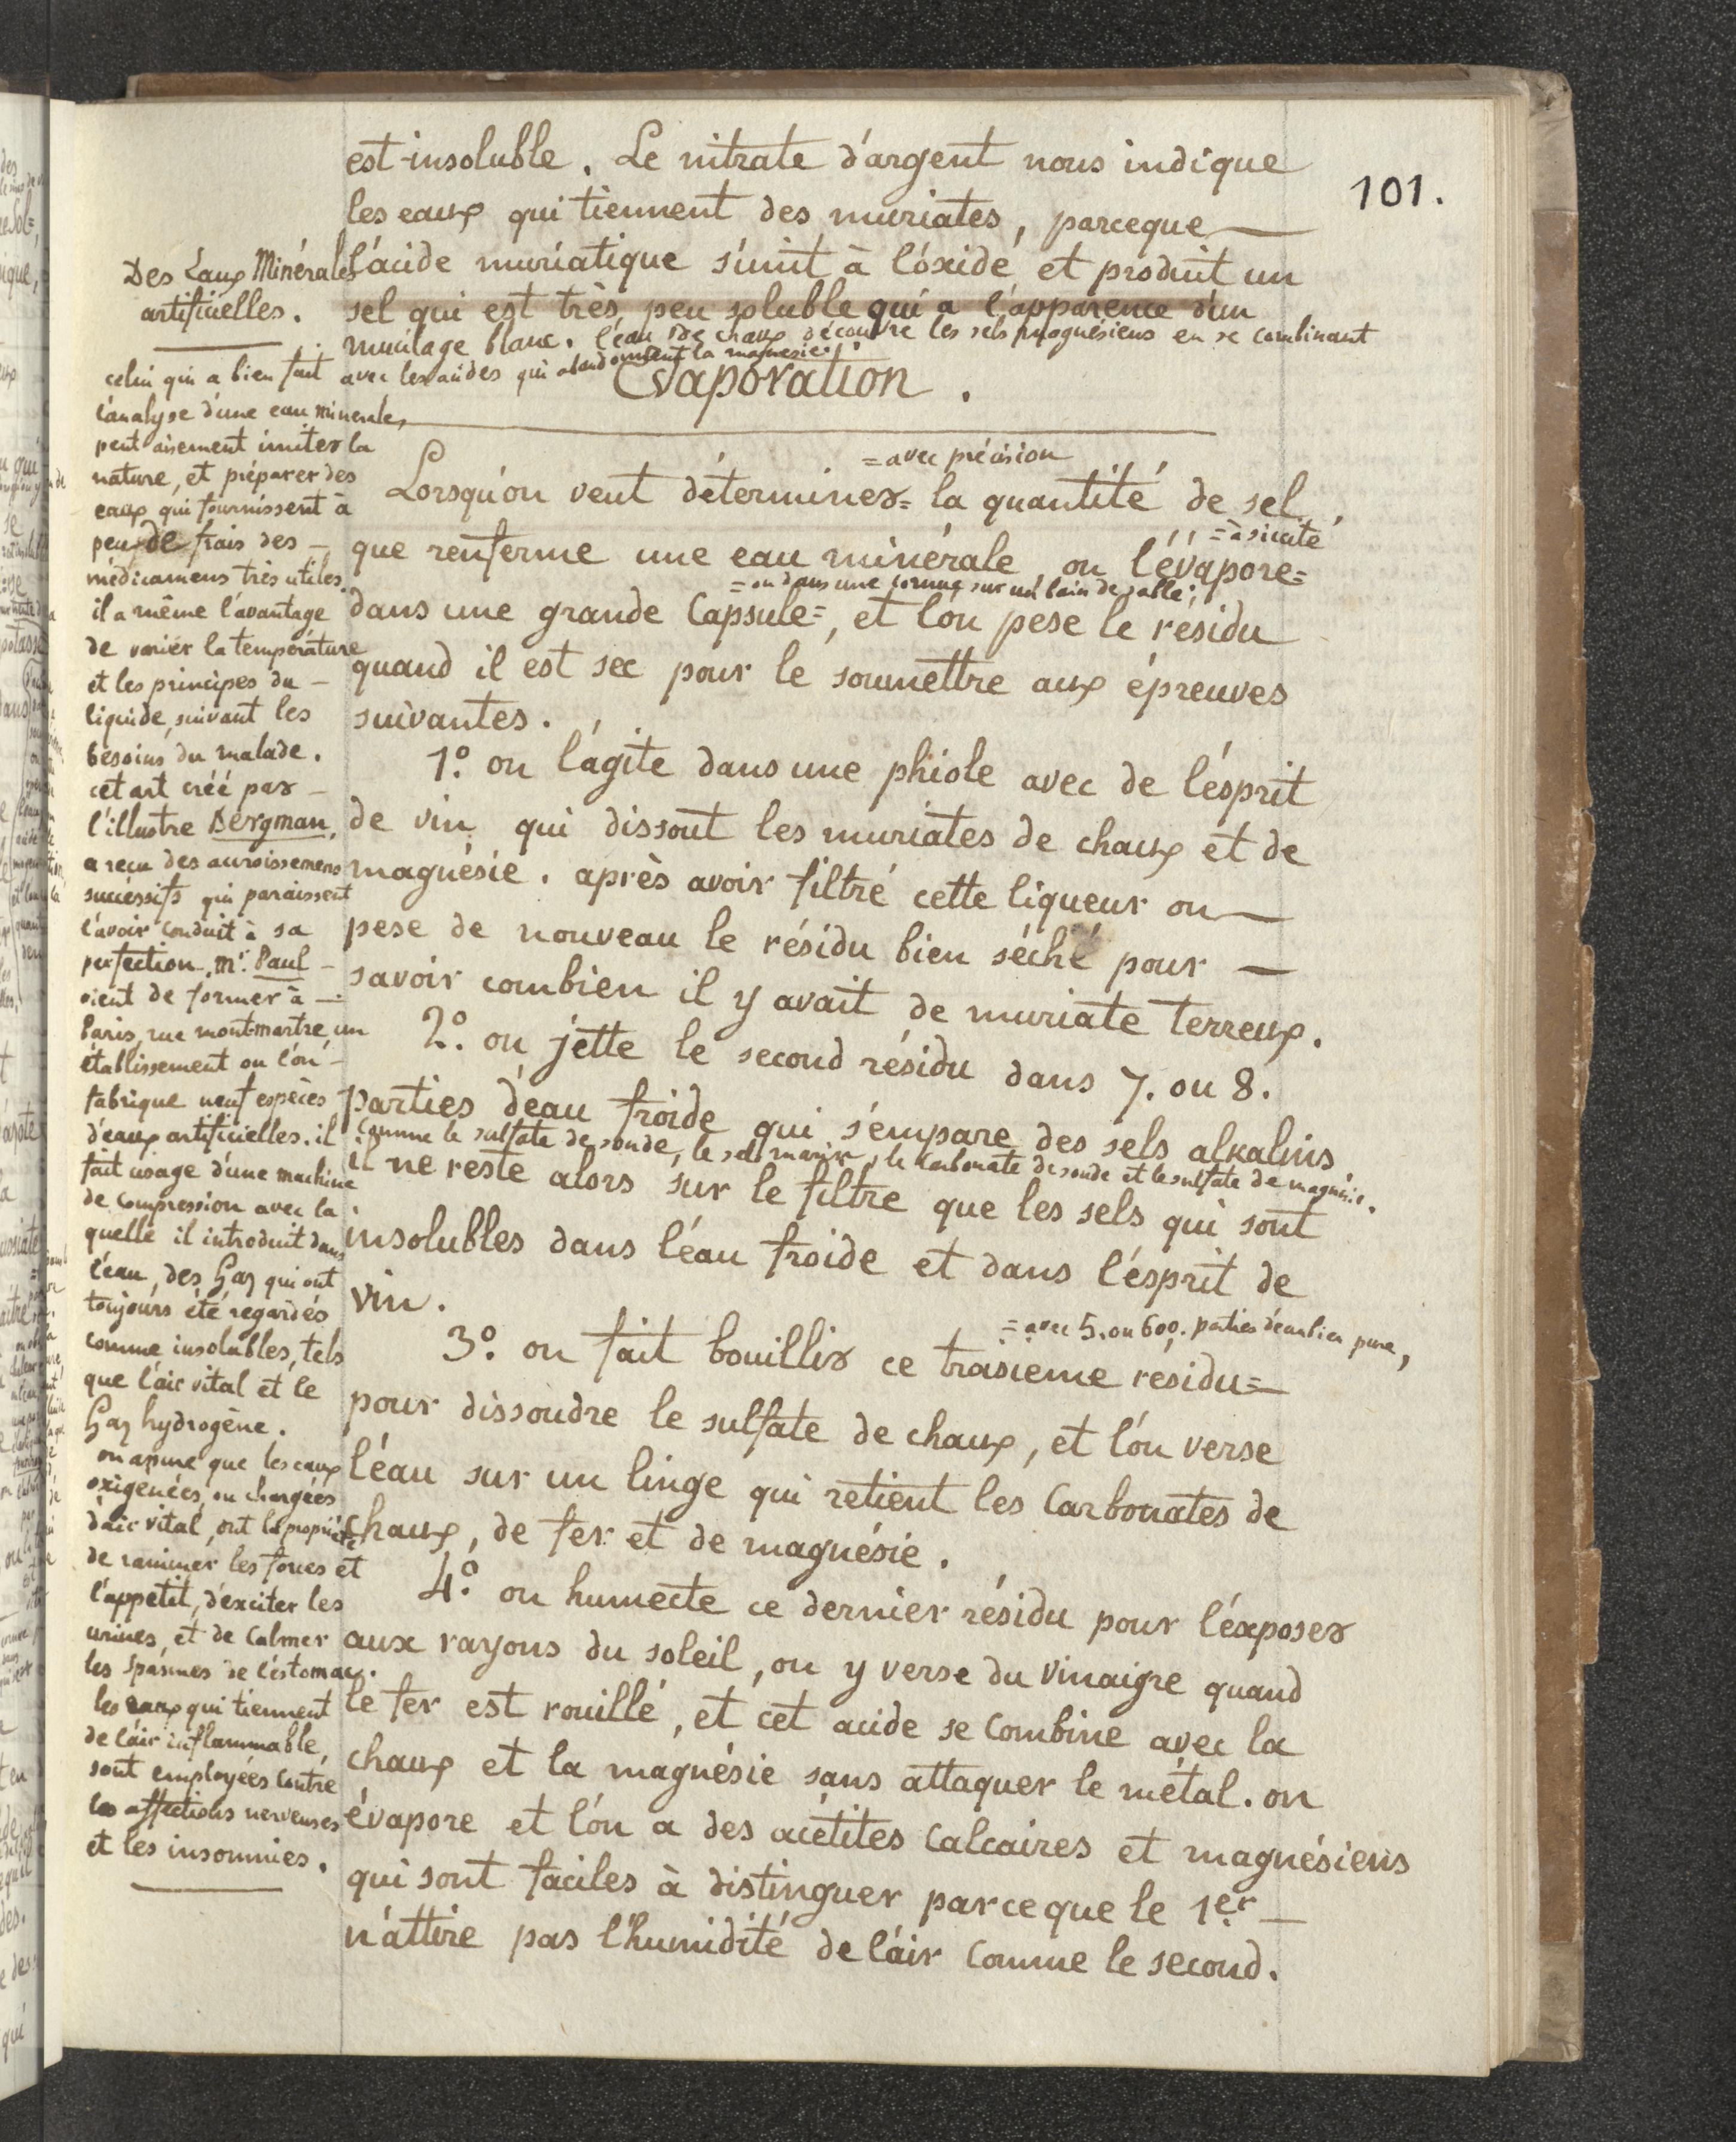 101.
est insoluble. Le nitrate d'argent nous indique
les eaux qui tiennent des muriates, parceque
l'acide muriatique s'unit à l'oxide et produit un
sel qui est très peu soluble qui a l'apparence d'un
mucilage blanc. l'eau de chaux découvre les sels magnésiens en se combinant
avec les acides qui abandonnent la magnesie.
Evaporation.
= avec précision
Lorsqu'on veut déterminer= la quantité de sel
= à sicité
que renferme une eau minérale, on l'évapore=
= ou dans une cornue sur un bain de sable;
dans une grande Capsule=, et l'on pese le residu
quand il est sec pour le soumettre aux épreuves
suivantes.
1.° on l'agite dans une phiole avec de l'ésprit
de vin qui dissout les muriates de chaux et de
magnésie. après avoir filtré cette liqueur on
pese de nouveau le résidu bien séché pour
savoir combien il y avait de muriate terreux.
2.° on jette le second résidu dans 7. ou 8.
parties d'eau froide qui s'empare des sels alkalins
comme le sulfate de soude, le sel marin, le carbonate de soude et le sulfate de magnésie.
il ne reste alors sur le filtre que les sels qui sont
insolubles dans l'eau froide et dans l'ésprit de
vin.
= avec 5. ou 600. parties d'eau bien pure,
3.° on fait bouillir ce troisieme residu=
pour dissoudre le sulfate de chaux, et l'on verse
l'éau sur un linge qui retient les Carbonates de
chaux, de fer et de magnésie.
4.° on humecte ce dernier résidu pour l'éxposer
aux rayons du soleil, on y verse du vinaigre quand
le fer est rouillé, et cet acide se Combine avec la
chaux et la magnésie sans attaquer le métal. on
évapore et l'on a des acétites Calcaires et magnésiens
qui sont faciles à distinguer parceque le 1er
n'attire pas l'humidité de l'air Comme le second.
Des Eaux Minérales
artificielles.
celui qui a bien fait
l'analyse d'une eau minerale,
peut aisement imiter la
nature, et préparer des
eaux qui fournissent à
peu de frais des
médicamens très utiles.
il a même l'avantage
de varier la température
et les principes du
liquide, suivant les
besoins du malade.
cet art créé par
l'illustre Bergman,
a reçu des accroissemens
successifs qui paraissent
l'avoir conduit à sa
perfection. Mr. Paul
vient de former à
Paris, rue montmartre, un
établissement ou l'on
fabrique neuf espèces
d'eaux artificielles. il
fait usage d'une machine
de compression avec la
quelle il introduit dans
l'eau, des Gaz qui ont
toujours été regardés
comme insolubles, tels
que l'air vital et le
Gaz hydrogène.
les eaux
oxigenées, ou chargées
d'air vital, ont la propriété
de ranimer les forces et
l'appétit, d'exciter les
urines, et de Calmer
les spasmes de l'éstomac.
les eaux qui tiennent
de l'air inflammable,
sont employées contre
les affections nerveuses
et les insomnies.